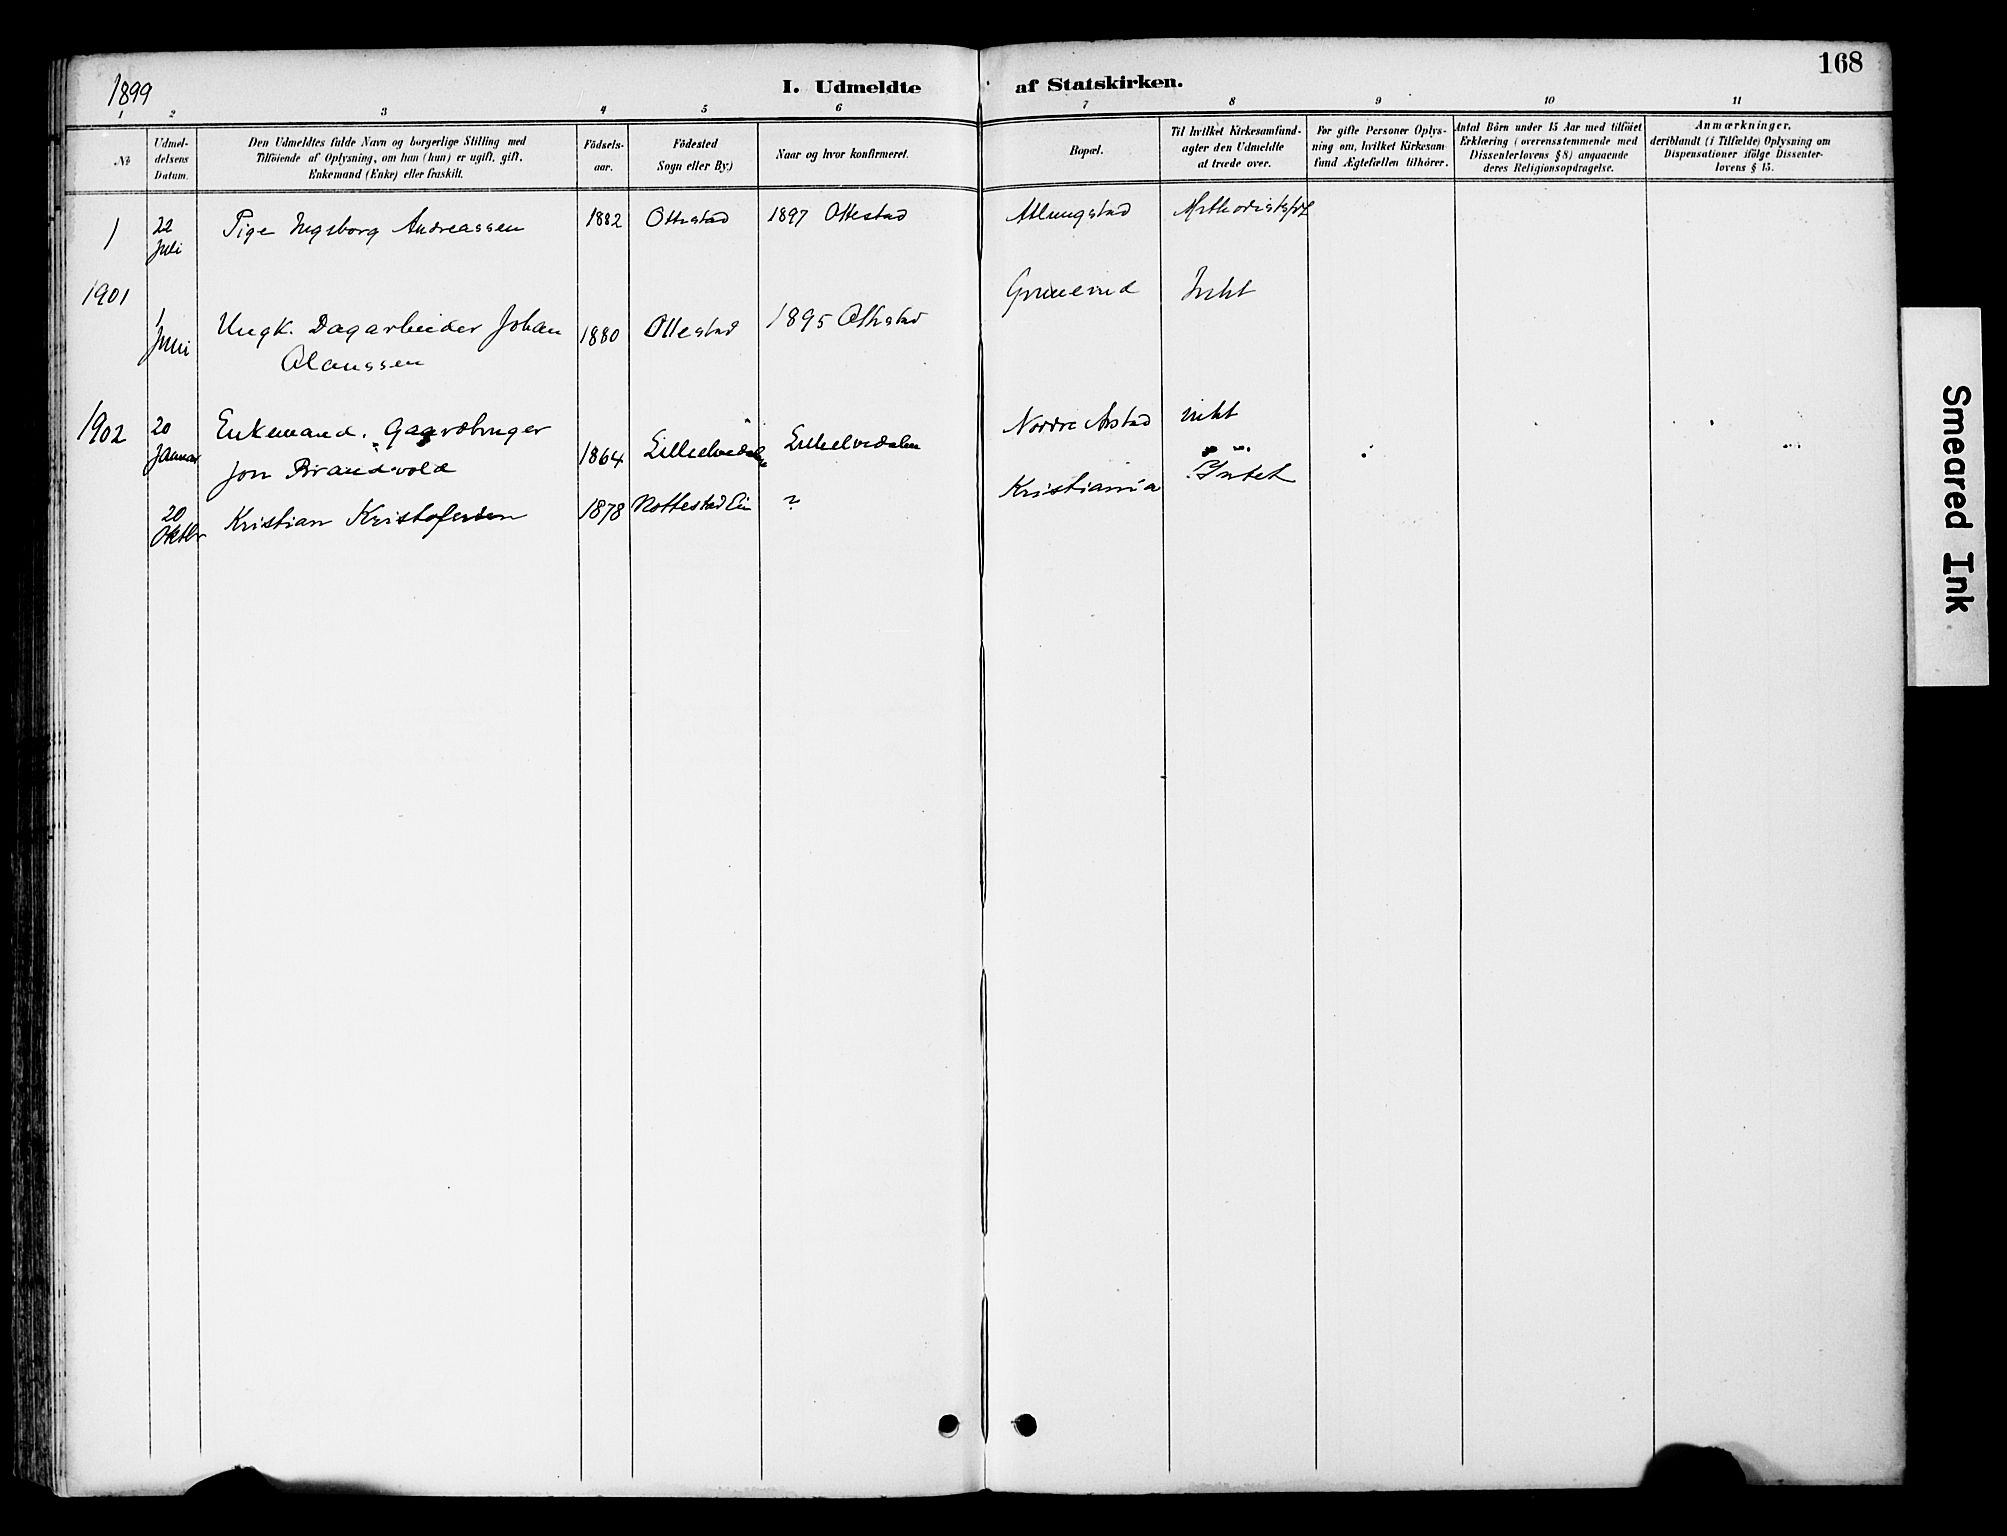 168
1899
I. Udmeldte af Statskirken.
1 2 3 4 5 6 7 8 9 10 11
No
Udmel-
delsens
Datum.
Den Udmeldtes fulde Navn og borgerlige Stilling med
Tilföiende af Oplysning, om han (hun) er ugift, gift,
Enkemand (Enke) eller fraskilt.
Födsels-
aar.
Födested
Sogn eller By.)
Naar og hvor konfirmeret.
Bopæl.
Til hvilket Kirkesamfund-
agter den Udmeldte
at træde over.
For gifte Personer Oplys-
ning om, hvilket Kirkesam-
fund Ægtefællen tilhörer.
Antal Börn under 15 Aar med tilföiet
Erklæring (overensstemmende med
Dissenterlovens § 8) angaaende
deres Religionsopdragelse.
Anmærkninger,
deriblandt (i Tilfælde) Oplysning om
Dispensationer ifölge Dissenter-
lovens § 15.
1 22 Pige Ingeborg Andreassen 1882 Ottestad 1897 Ottestad Atlungstad
Juli
1901
1 Ungk. Dagarbeider Johan 1880 Ottestad 1895 Ottestad Intet
Juni
Olaussen
1902 20 Enkemand. Gaardbruger Nordre Arstad intet
Januar Jon Brandvold 1864 Lilleelvedalen Lilleelvedalen
20 Kristian Kristofersen 1878 ? Kristiania Intet
Oktbr
Smeared Ink